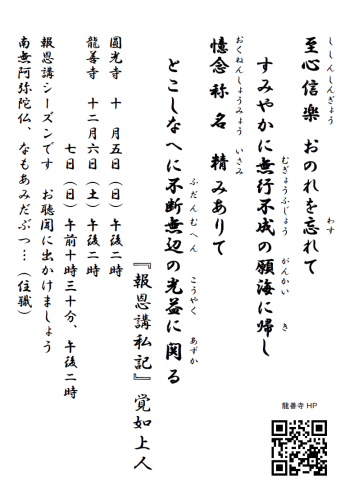 至心信楽 おのれを忘れて
ししんしんぎょう わす
すみやかに無行不成の願海に帰し
むぎょうふじょう がんかい き
憶念称名 精みありて
おくねんしょうみょう いさみ
とこしなへに不断無辺の光益に関る
ふだんむへん こうやく あずか
『報恩講私記』覚如上人
圓光寺 十 月五日（日）午後二時
龍善寺 十二月六日（土）午後二時
七日（日）午前十時三十分、午後二時
報恩講シーズンです お聴聞に出かけましょう
南無阿弥陀仏、なもあみだぶつ…（住職）
龍善寺 HP